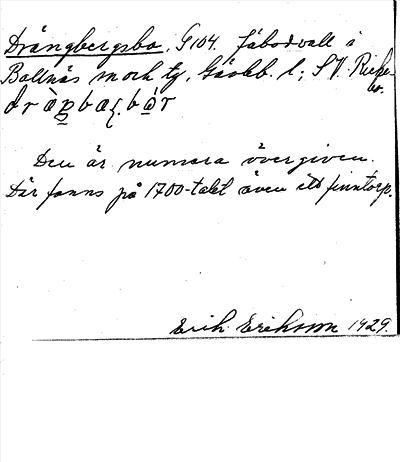 Drängbergsbo, G104. fäbodvall i
Bollnäs sn och tg, Gävleb. l; SV.
Den är numera övergiven.
Där fanns på 1700-talet även ett finntorp.
Erik Eriksson 1929.